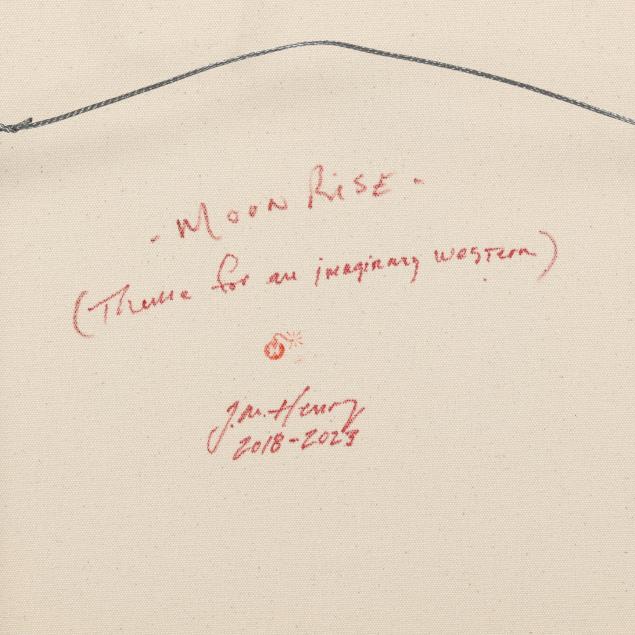 - MOON RISE -
(Theme for an imaginary western)
J.M. Henry
2018-2023